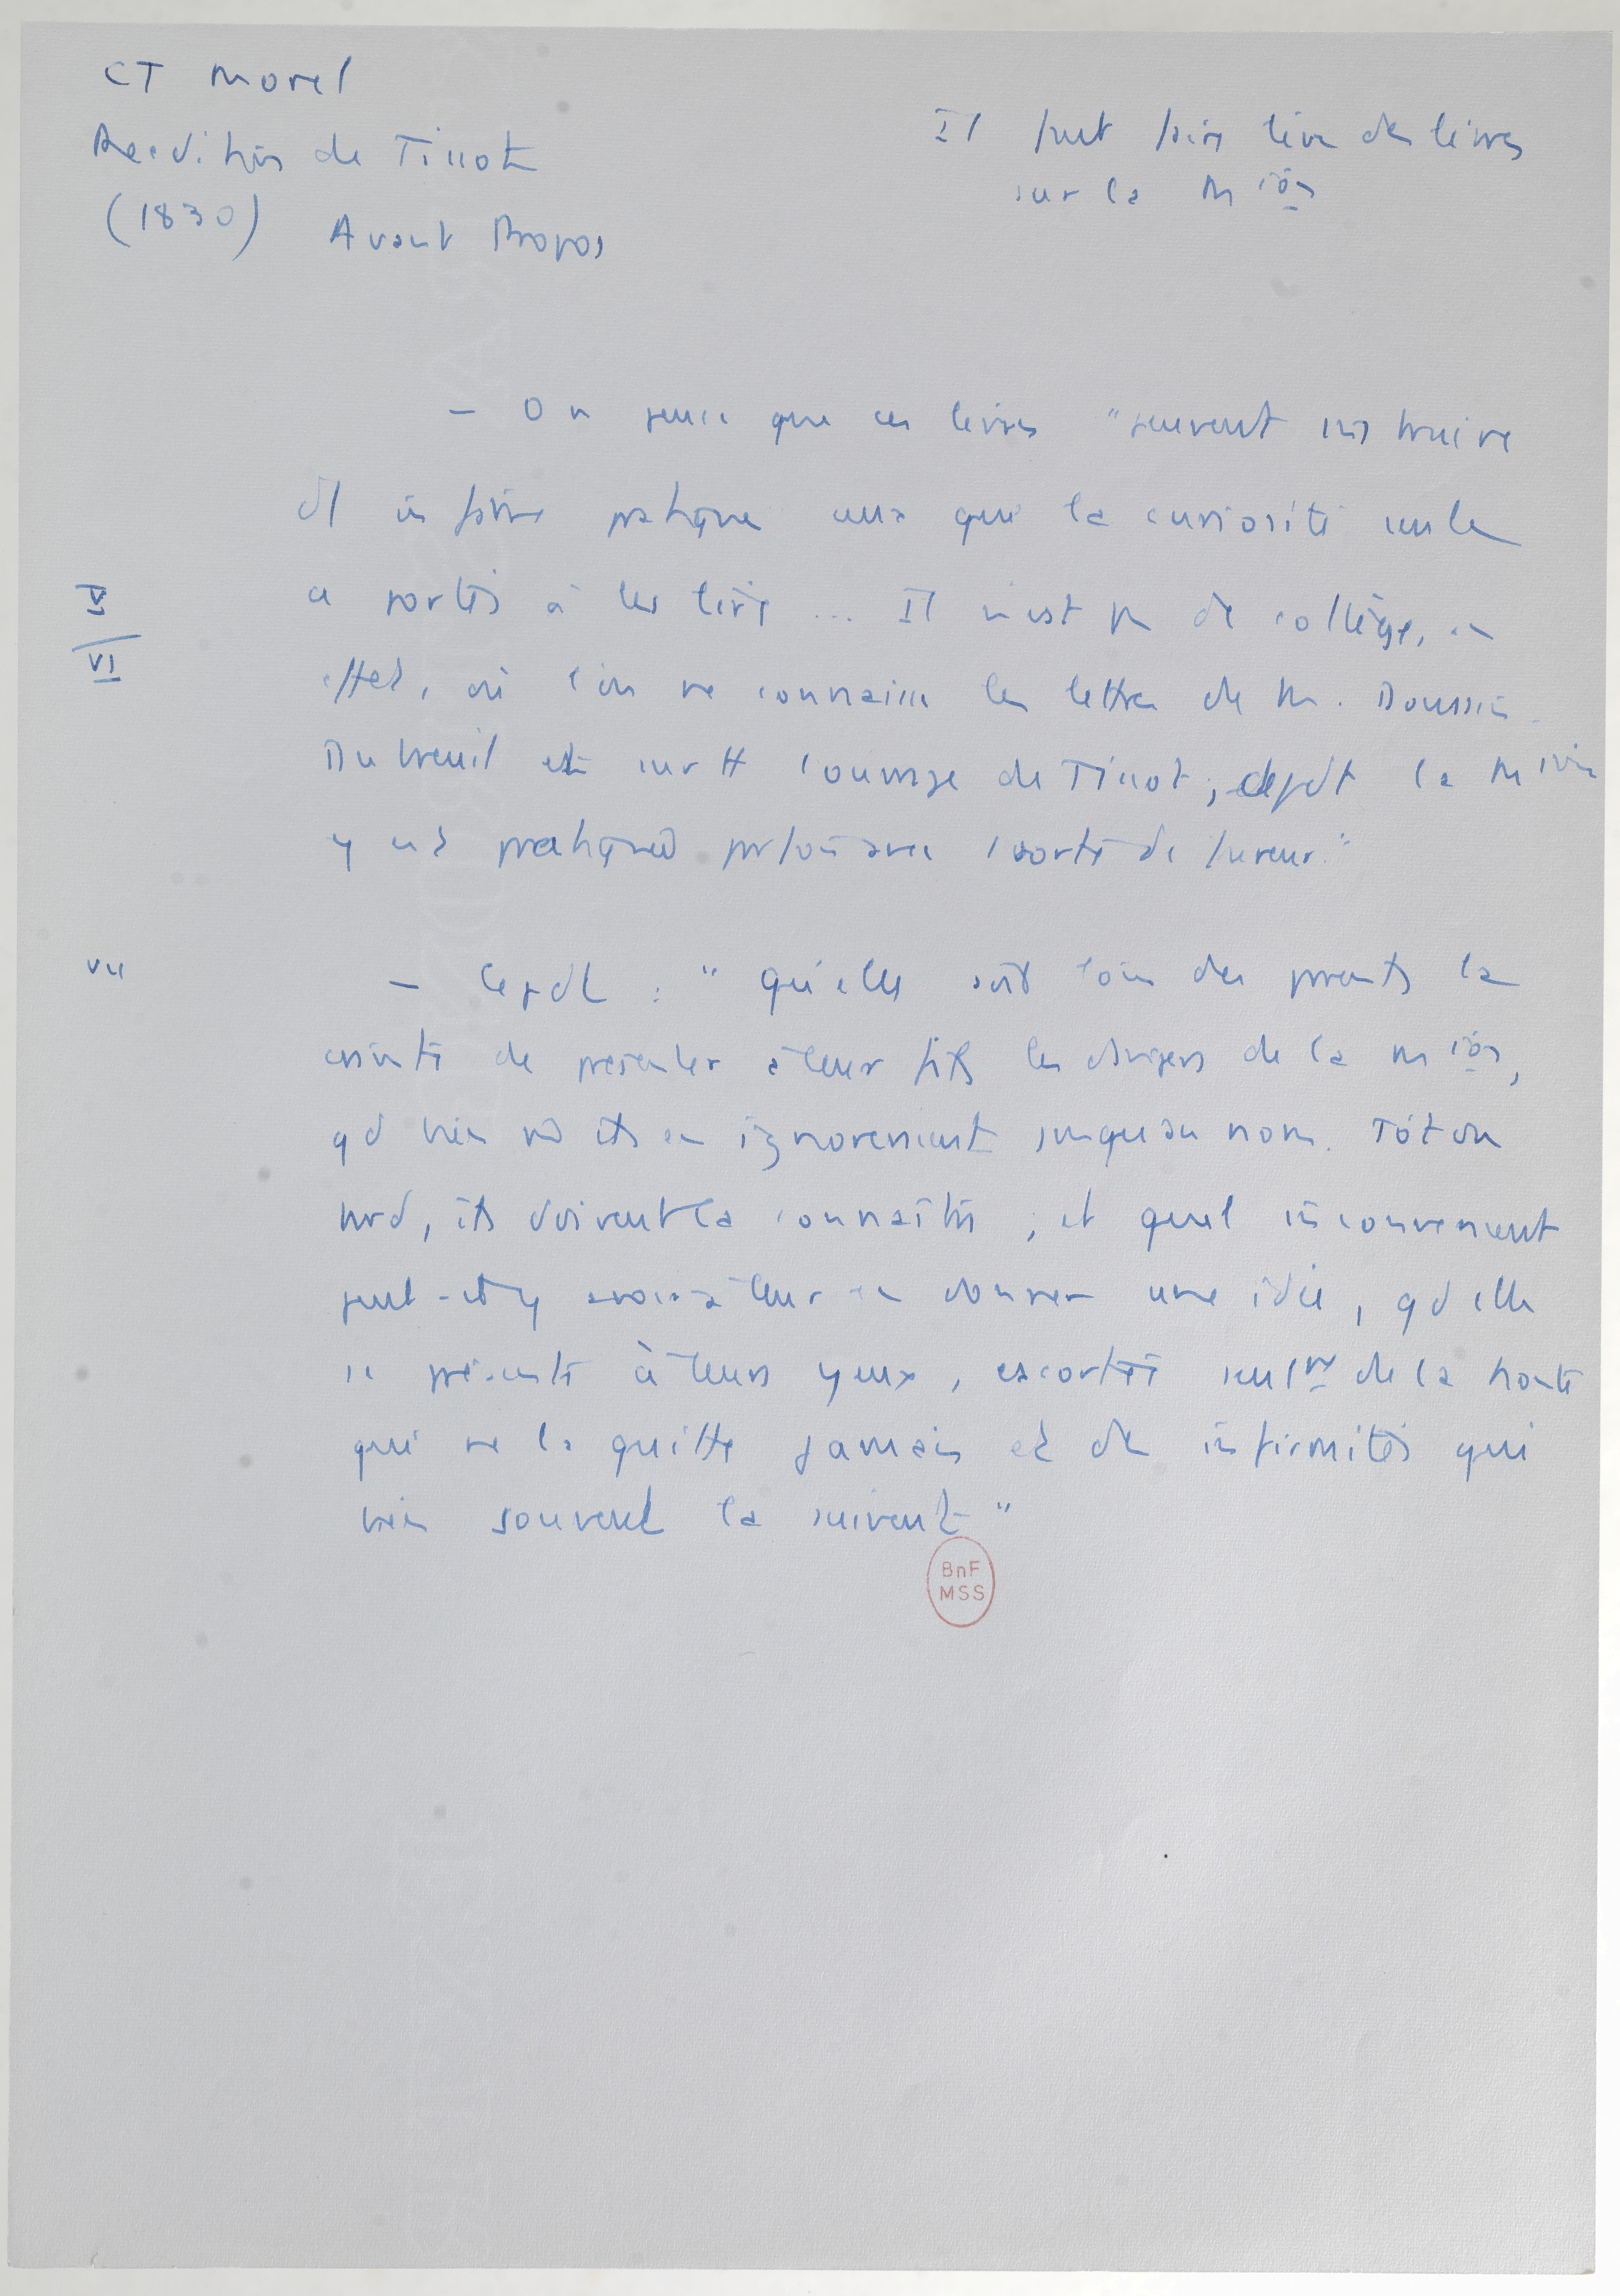 CT Morel
Reedition de Tissot
(1830) Avant Propos
Il faut faire lire des livres
sur la M ion
– On pense que ces livres "peuvent instruire
in pratique ceux que la curiosité seule
a portés à les lire ... Il n'est pas de collège, en
effet, où l'on ne connaisse les lettres de M. Doussin
Dutreuil et surtt l'ouvrage de Tissot ; cepdt la M ion
y est pratiquée parfois avec 1 sorte de fureur."
V
VI
VII
– Cepdt : " qu'elle soit loin des parents la
crainte de présenter à leur fils les dangers de la m ion,
qd bien même ils en ignoreraient jusqu'au nom. Tôt ou
tard, ils doivent la connaître ; et quel inconvenient
peut-il y avoir à leur en donner une idée, qd elle
se présente à leurs yeux, escortée seulnt de la honte
qui ne la quitte jamais et des infirmités qui
bien souvent la suivent "
BnF
MSS